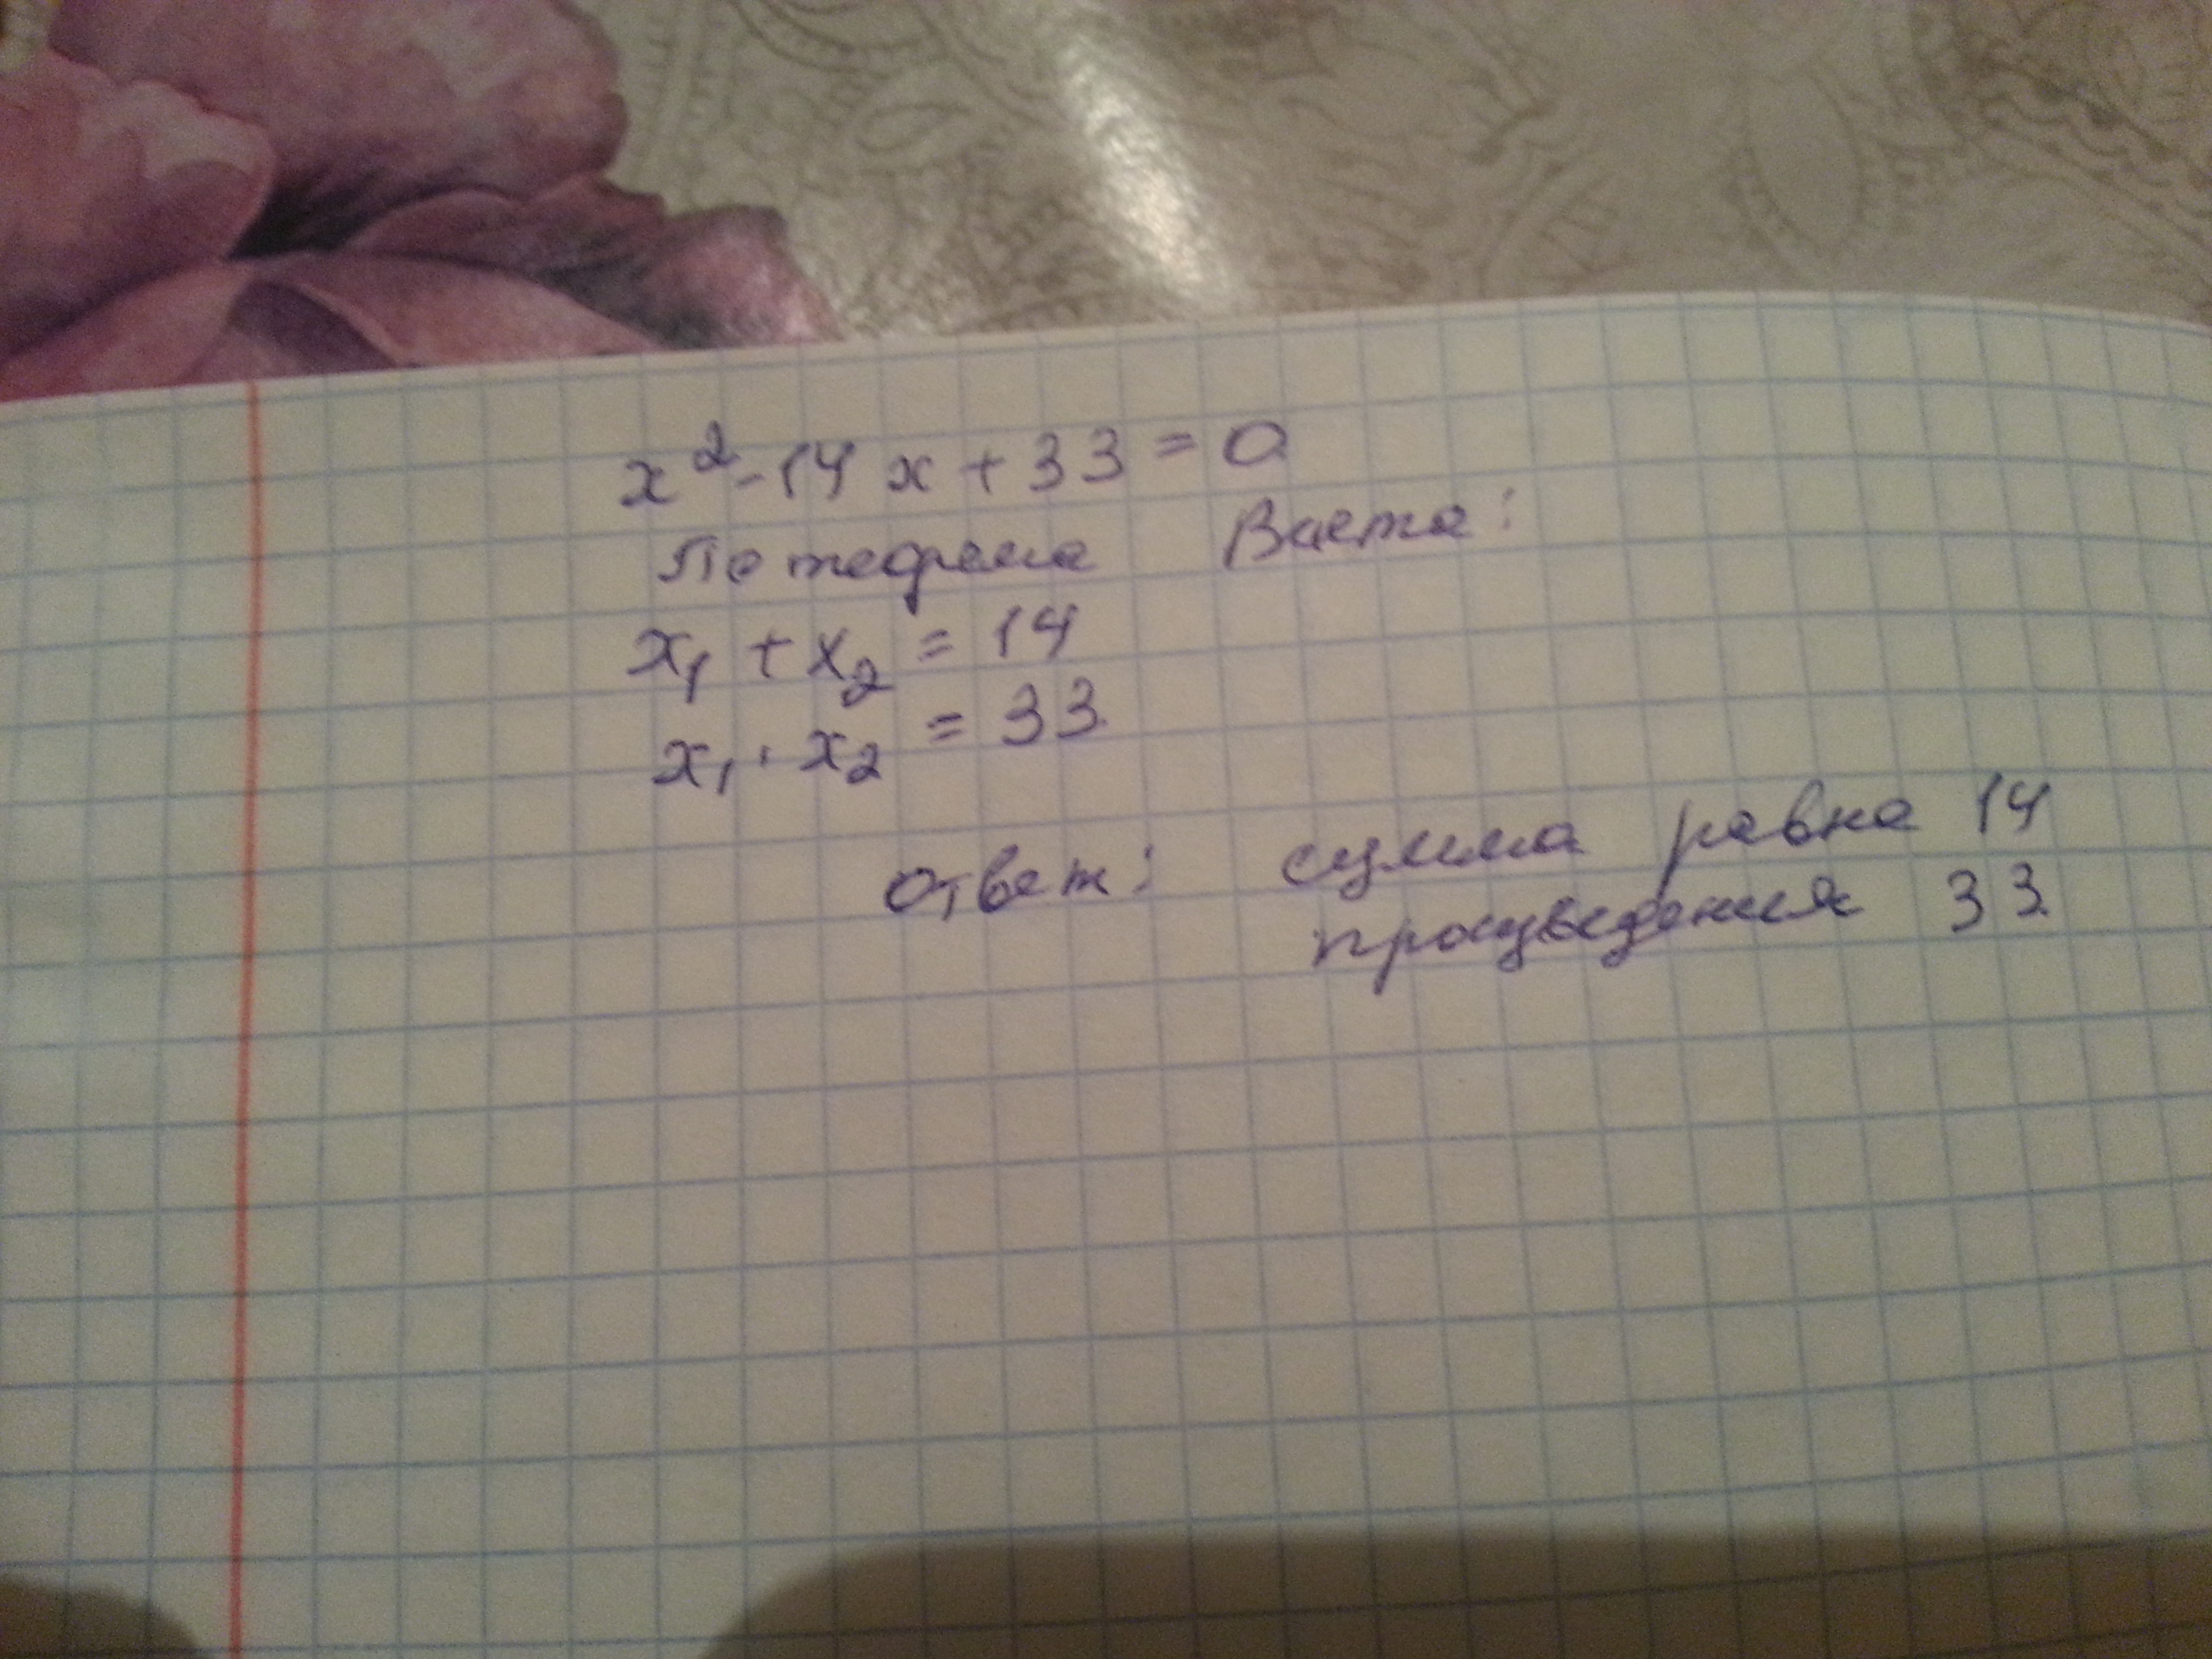 x² - 14x + 33 = 0
По теорема Виета:
x₁ + x₂ = 14
x₁ · x₂ = 33
Ответ: сумма равна 14
произведения 33